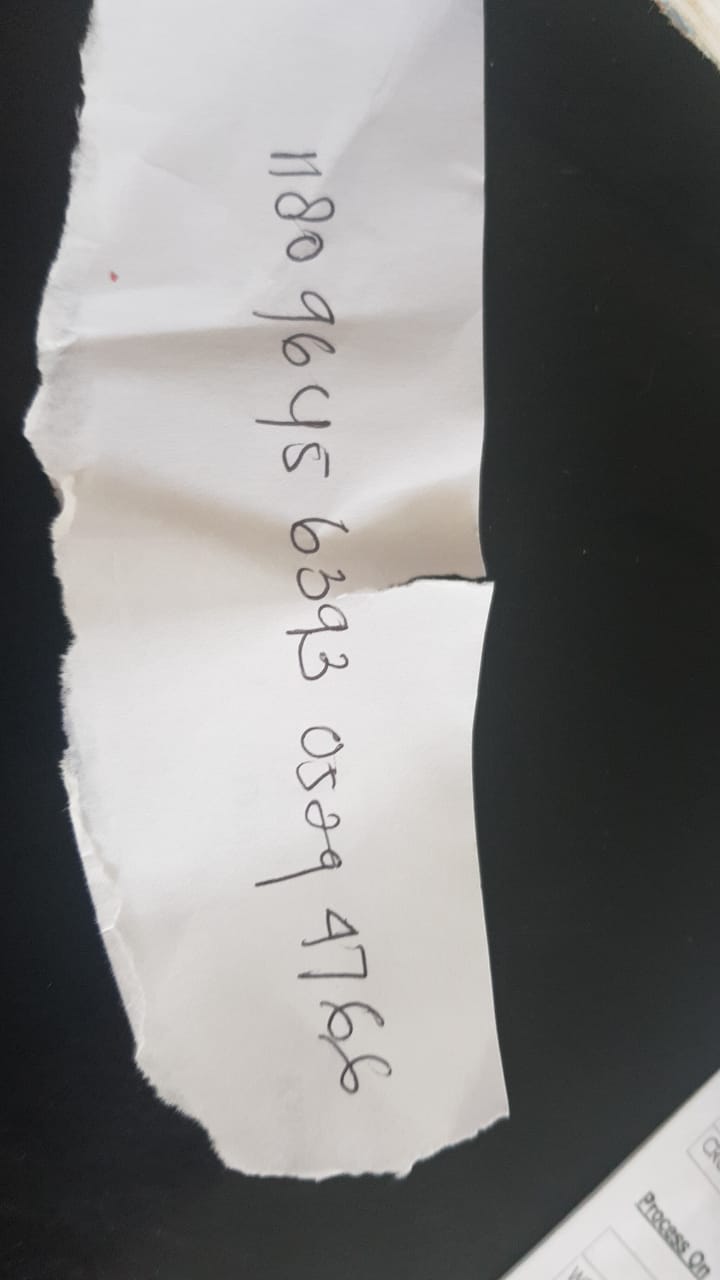 1180 9645 6393 0529 4766
Process On